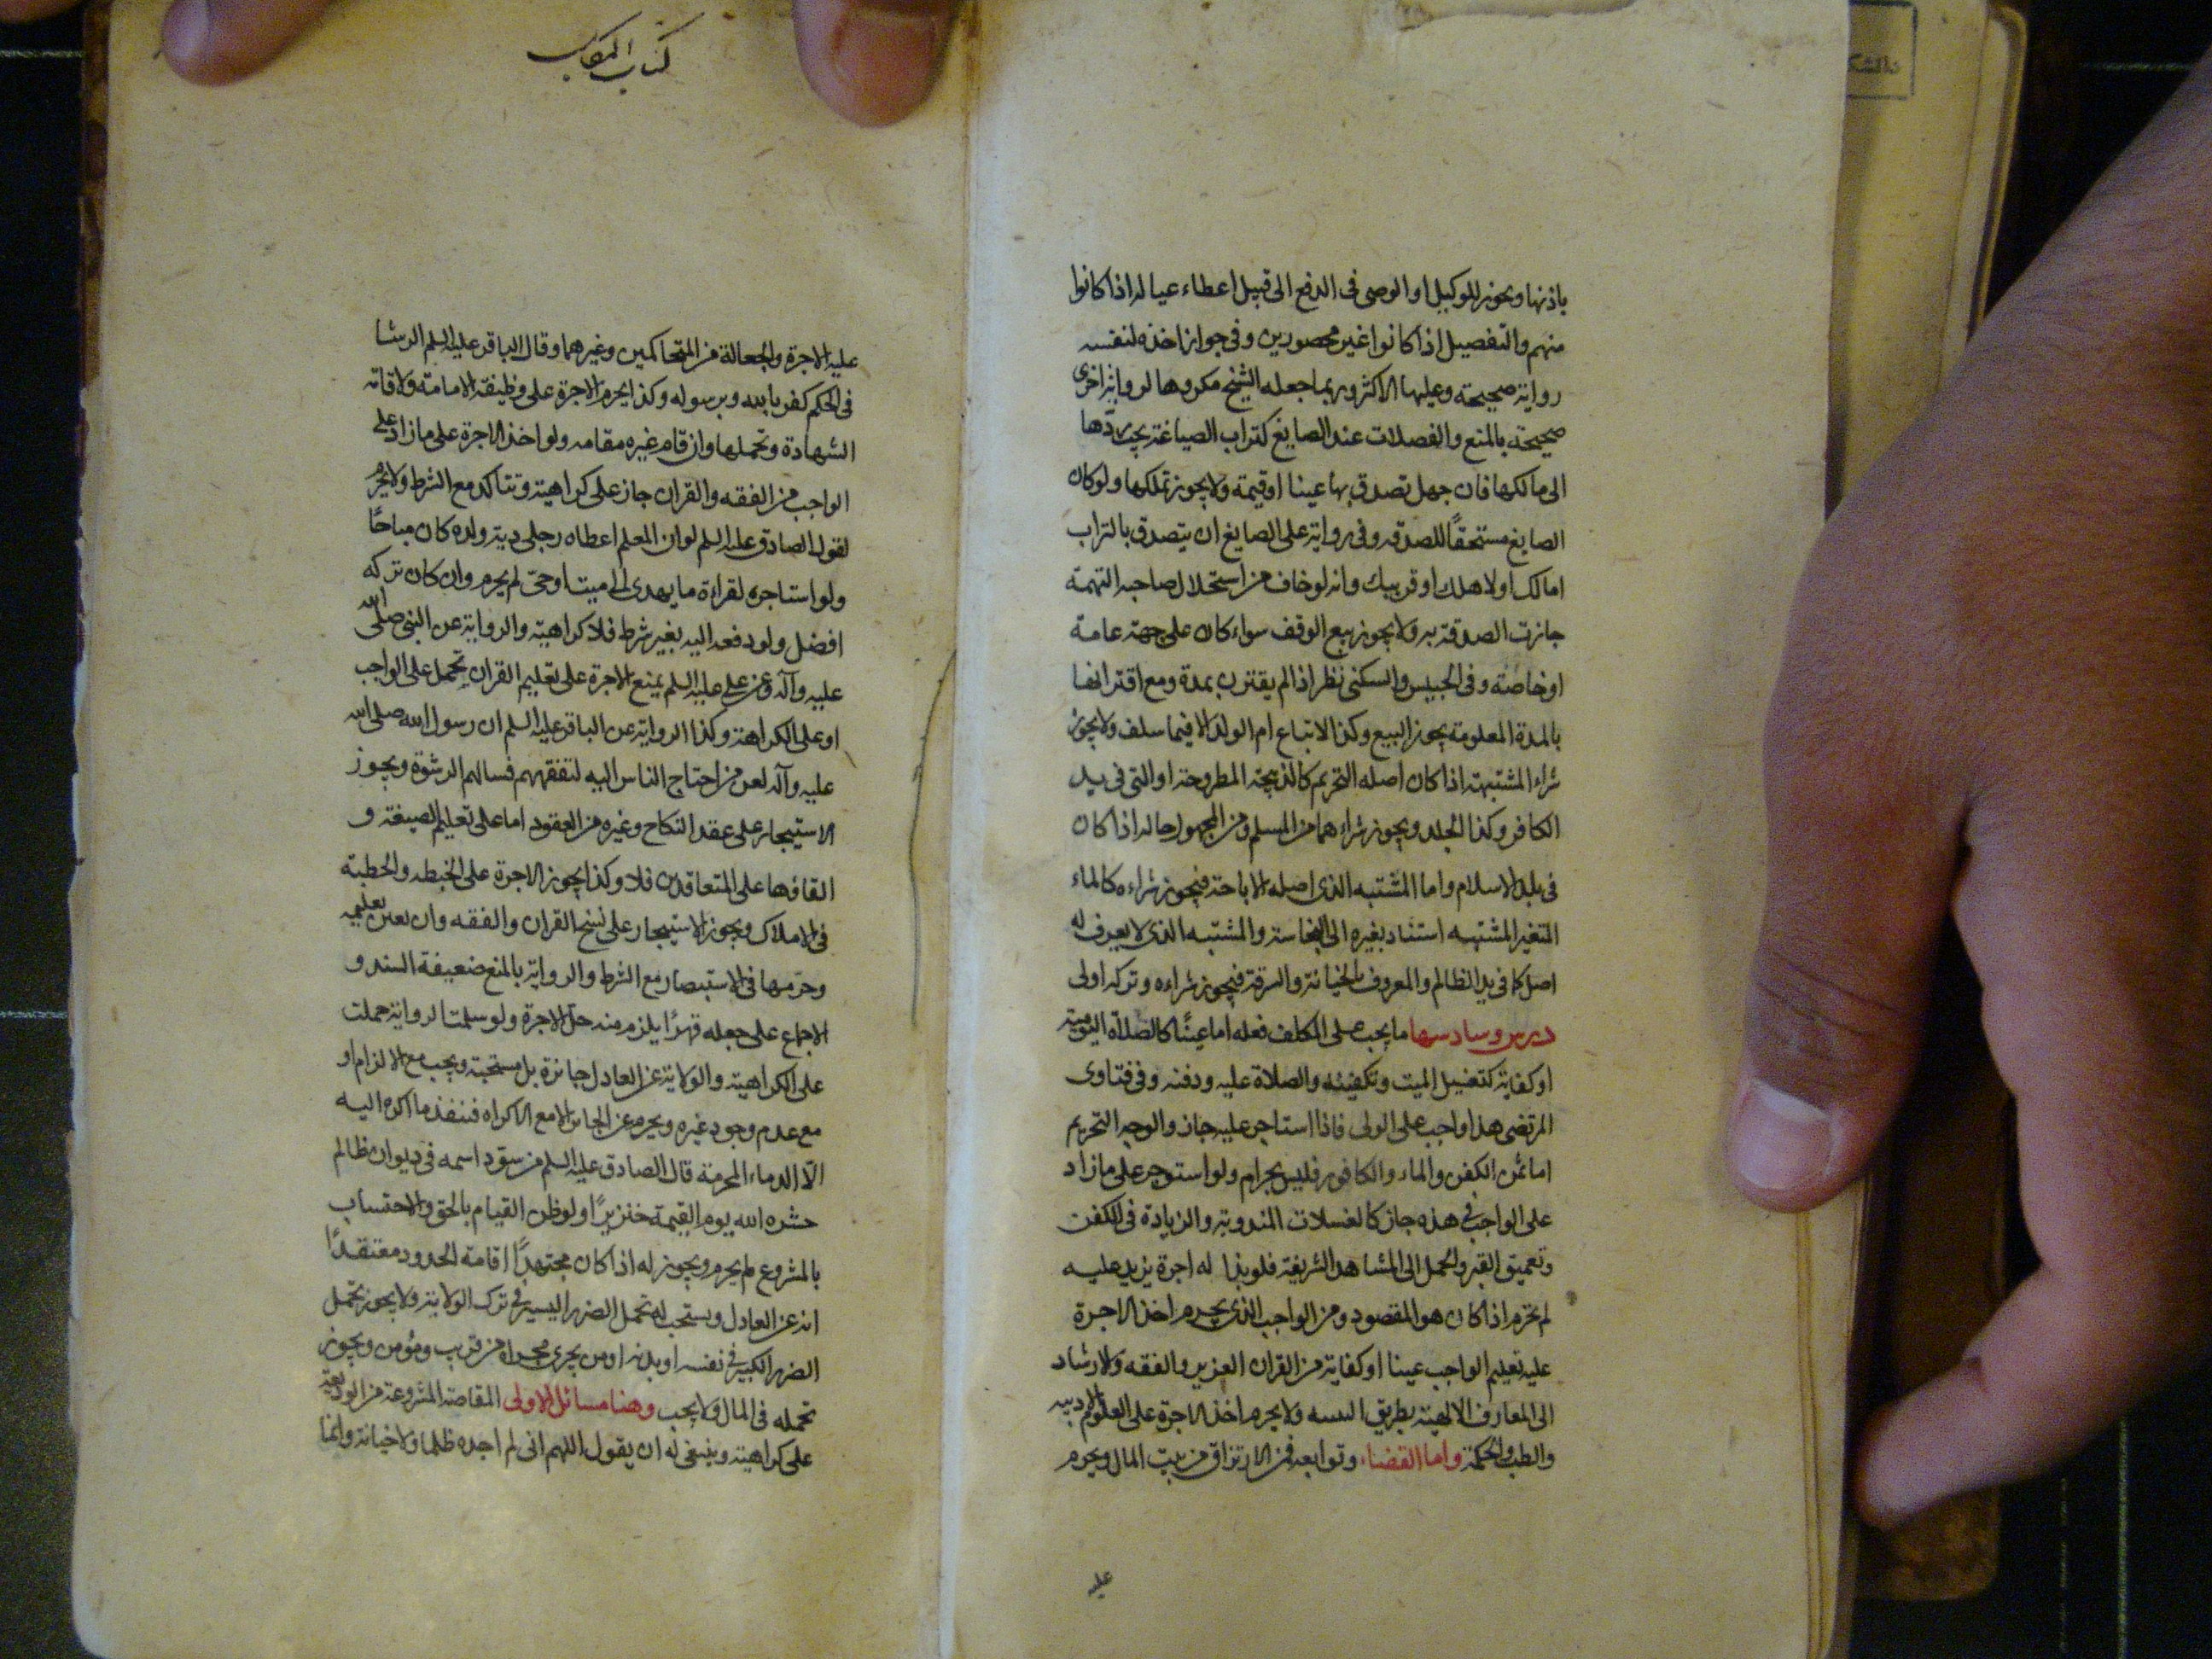 باذنها ويجوز للوكيل او الوصى فى الدفع الى قبيل اعطاء عياله اذا كانوا
منهم والتفصيل اذا كانوا غير محصورين وفى جواز اخذه لنفسه
رواية صحيحة وعليها الاكثر وربما جعله الشيخ مكروها لرواية اخرى
صحيحة بالمنع والفضلات عند الصايغ كتراب الصياغة يجب ردها
الى مالكها فان جهل تصدق بها عينا او قيمة ولا يجوز تملكها ولو كان
الصايغ مستحقًا للصدقه وفى رواية على الصايغ ان يتصدق بالتراب
اما لك او لاهلك او قريبك وانه لو خاف من استحلال صاحبه التهمة
جازت الصدقة به ولا يجوز بيع الوقف سواء كان على جهة عامة
او خاصة وفى الحبيس والسكنى نظر اذا لم يقترن بمدة ومع اقترانها
بالمدة المعلومة يجوز البيع وكذا لاتباع ام الولد الا فيما سلف ولا يجوز
شراء المشتبهة اذا كان اصله التحريم كالذبيحة المطروحة او التى فى يد
الكافر وكذا الجلد ويجوز شراءهما من المسلم ومن المجهول حاله اذا كان
فى بلد الاسلام واما المشتبه الذى اصله الاباحة فيجوز شراءه كالماء
المتغير المشتبه استناد تغيره الى النجاسة والمشتبه الذى لا يعرف له
اصل كما فى يد الظالم والمعروف بالخيانة والسرقة فيجوز شراءه وتركه اولى
درس وسادسها ما يجب على المكلف فعله اما عينًا كالصلاة اليومية
او كفاية كتغسيل الميت وتكفينه والصلاة عليه ودفنه وفى فتاوى
المرتضى هذا واجب على الولى فاذا استاجر عليه جاز والوجه التحريم
اما ثمن الكفن والماء والكافور فليس بحرام ولو استوجر على ما زاد
على الواجب فى هذه جاز كالغسلات المندوبة والزيادة فى الكفن
وتعميق القبر والحمل الى المشاهد الشريفة فلو بذل له اجرة يزيد عليه
لم تحرم اذا كان هو المقصود ومن الواجب الذى يحرم اخذ الاجرة
عليه تعليم الواجب عينا او كفاية من القران العزيز والفقه والارشاد
الى المعارف الالهية بطريق التنبيه ولا يحرم اخذ الاجرة على العلوم الادبيه
والطب والحكمة واما القضاء وتوابعه فمن الارتزاق من بيت المال ويحرم
عليه
كتاب المكاسب
عليه الاجرة والجعالة من المتحاكمين وغيرهما وقال الباقر عليه السلم الرشا
فى الحكم كفر بالله وبرسوله وكذا يحرم الاجرة على وظيفة الامامة ولاقامة
الشهادة وتحملها وان قام غيره مقامه ولو اخذ الاجرة على ما زاد على
الواجب من الفقه والقران جاز على كراهية وتتاكد مع الشرط ولا يحرم
لقول الصادق عليه السلم لو ان المعلم اعطاه رجل دية ولده كان مباحًا
ولو استاجره لقراءة ما يهدى الى ميت او حى لم يحرم وان كان تركه
افضل ولو دفعه اليه بغير شرط فلا كراهية والرواية عن النبى صلى الله
عليه وآله وعن على عليه السلم بمنع الاجرة على تعليم القران تحمل على الواجب
او على الكراهة وكذا الرواية عن الباقر عليه السلم ان رسول الله صلى الله
عليه وآله لعن من احتاج الناس اليه لتفقههم فسالهم الرشوة ويجوز
الاستيجار على عقد النكاح وغيره من العقود اما على تعليم الصيغة و
القاءها على المتعاقدين فلا وكذا يجوز الاجرة على الخطبه والخطبة
فى الاملاك ويجوز الاستيجار على نسخ القران والفقه وان تعين تعليمه
وحرمها فى الاستبصار مع الشرط والرواية بالمنع ضعيفة السند و
الاجماع على جعله مهرًا يلزم منه حل الاجرة ولو سلمت الرواية حملت
على الكراهية والولاية عن العادل جائزة بل مستحبة ويجب مع الالزام او
مع عدم وجود غيره ويحرم عن الجائر الا مع الاكراه فينفذ ما اكره اليه
الّا الدماء المحرمة قال الصادق عليه السلم من سوّد اسمه فى ديوان ظالم
حشره الله يوم القيمة خنزيرًا ولو ظن القيام بالحق والاحتساب
بالمشروع لم يحرم ويجوز له اذا كان مجتهدًا اقامة الحدود معتقدًا
انه عن العادل ويستحب له تحمل الضرر اليسير فى ترك الولاية ولا يجوز تحمل
الضرر الكبير فى نفسه او بدنه او من يجرى مجراه من قريب ومؤمن ويجوز
تحمله فى المال ولا يجب وهنا مسائل الاولى المقاصة المشروعة من الوديعة
على كراهية وينبغى له ان يقول اللهم انى لم اخذه ظلما ولا خيانة وانما